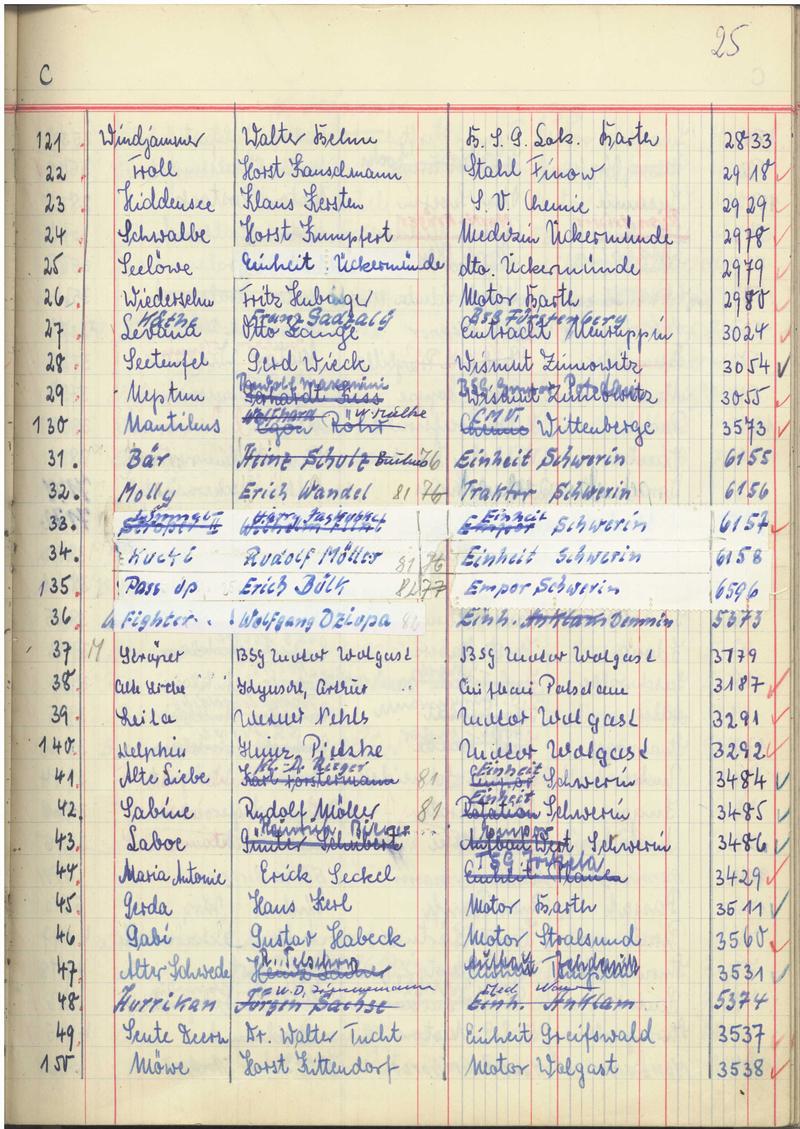 25
C
121 Windjammer Walter Behm B. S. G. Lok. Barth 2833
22 Troll Horst Stahl Finow 2918
23 Hiddensee Klaus Kersten S. V. Chemie 2929
24 Schwalbe Horst Kumpfert Medizin Ückermünde 2978
25 Seelöwe Einheit Ückermünde dto. Ückermünde 2979
26. Wiedersehn Fritz Motor Barth 2980
Käthe Franz BSG Fürstenberg
27 Levana Otto Lange Eintracht Neuruppin 3024
28 Seeteufel Gerd Wieck Wismut Zinnowitz 3054
Rudolf BSG Empor
29 Neptun Wismut Zinnowitz 3055
130 Nautilus Egon Röhr Wittenberge 3573
31. Bär Heinz Schulz 76 Einheit Schwerin 6155
32. Molly Erich Wandel 81 76 Traktor Schwerin 6156
Einheit
33. Empor Schwerin 6157
34. Kucki Rudolf Möller 81 76 Einheit Schwerin 6158
135 Pass. up Erich Bülk 81 77 Empor Schwerin 6596
36 Fighter Wolfgang Dziopa 82 Einh. Anklam Demmin 5373
37 M Ströper BSG Motor Wolgast BSG Motor Wolgast 3179
38. Arthur Potsdam 3187
39. Leila Werner Nehls Motor Wolgast 3291
140. Delphin Heinz Pietzke Motor Wolgast 3292
Kl. D. Rieger Einheit
41. Alte Liebe Karl Förstermann 81 Schwerin 3484
Einheit
42. Sabine Rudolf Möller 81 Rotation Schwerin 3485
Empor
43. Laboe Günter Schubert Aufbau West Schwerin 3486
TSG
44. Maria Antonie Erick Seckel Einheit 3429
45. Gerda Hans Kerl Motor Barth 3511
46 Gabi Gustav Habeck Motor Stralsund 3560
47. Alter Schwede 3531
48. Hurrikan Jürgen Sachse Einh. Anklam 5374
49 Seute Deern Dr. Walter Tucht Einheit Greifswald 3537
150 Möwe Horst Kittendorf Motor Wolgast 3538